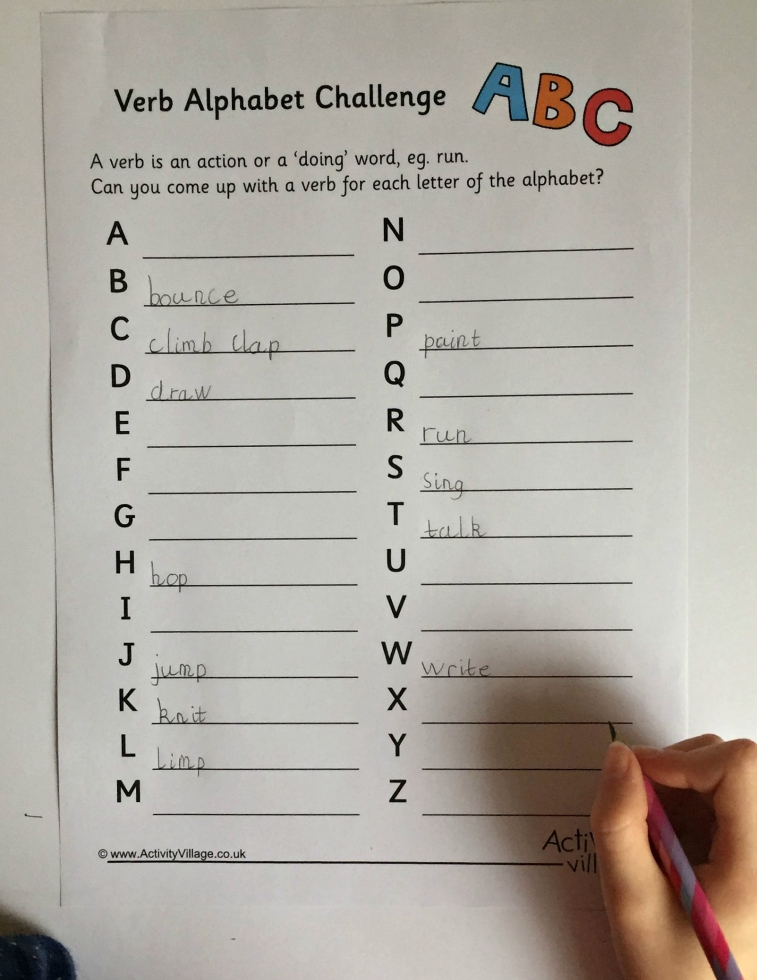 Verb Alphabet Challenge
ABC
A verb is an action or a ‘doing’ word, eg. run.
Can you come up with a verb for each letter of the alphabet?
A
B bounce
C climb clap
D draw
E
F
G
H hop
I
J jump
K knit
L limp
M
N
O
P paint
Q
R run
S sing
T talk
U
V
W write
X
Y
Z
© www.ActivityVillage.co.uk